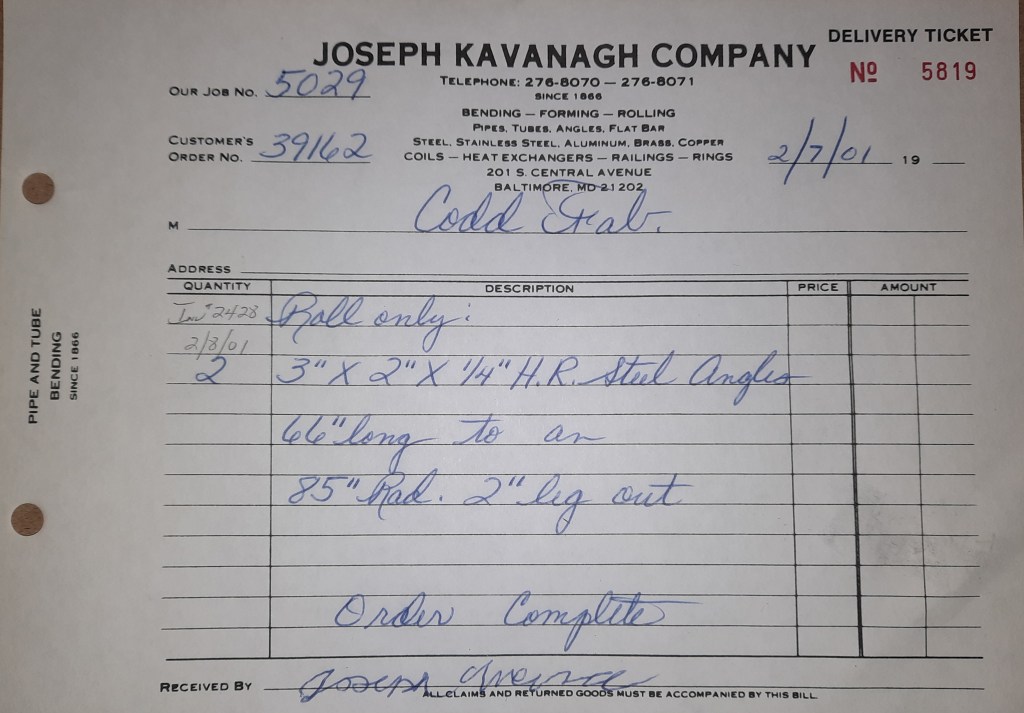 DELIVERY TICKET
JOSEPH KAVANAGH COMPANY
Nº 5819
OUR JOB NO. 5029
TELEPHONE: 276-8070 — 276-8071
SINCE 1866
BENDING — FORMING — ROLLING
PIPES, TUBES, ANGLES, FLAT BAR
CUSTOMER'S
ORDER NO. 39162
STEEL, STAINLESS STEEL, ALUMINUM, BRASS, COPPER
COILS — HEAT EXCHANGERS — RAILINGS — RINGS
2/7/01 19
201 S. CENTRAL AVENUE
BALTIMORE, MD 21202
M Codd Fab.
ADDRESS
QUANTITY DESCRIPTION PRICE AMOUNT
Inv # 2428 Roll only:
2/8/01
2 3" X 2" X 1/4" H.R. Steel Angles
66" long to an
85" Rad. 2" leg out
Order Complete
RECEIVED BY Joseph
ALL CLAIMS AND RETURNED GOODS MUST BE ACCOMPANIED BY THIS BILL.
PIPE AND TUBE
BENDING
SINCE 1866